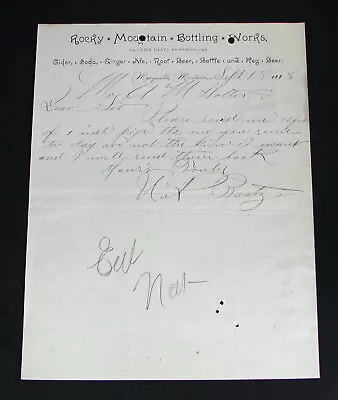 Rocky Mountain Bottling Works,
NICK BAATZ, PROPRIETOR
Cider, Soda, Ginger Ale, Root Beer, Bottle and Keg Beer.
Maysville, Montana Sept 18 188
A M Holter
Dear Sir
Please send me
of 1 inch pipe the one you send
to day are not the kind I meant
and I will send them back
Yours Truly
Nick Baatz